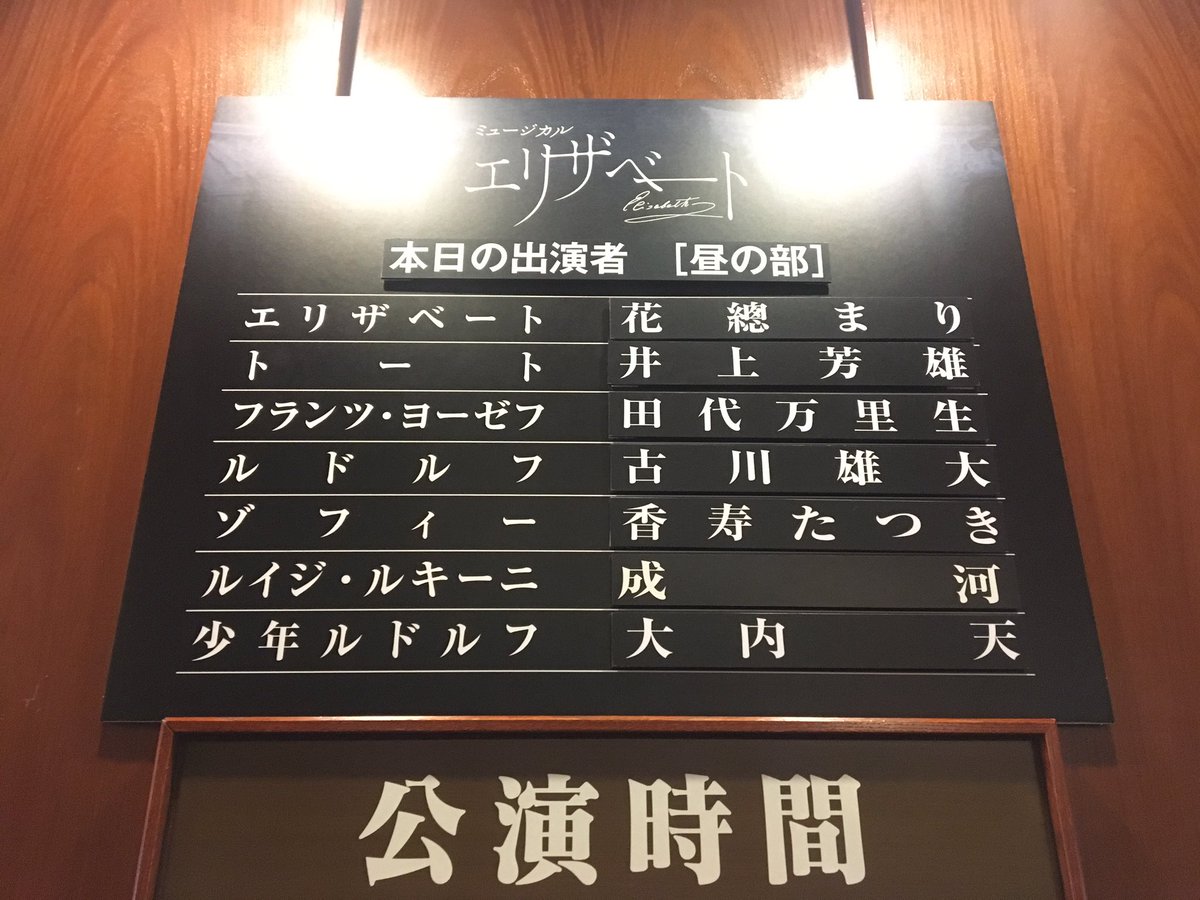 ミュージカル
エリザベート
Elisabeth
本日の出演者 [昼の部]
エリザベート 花總まり
トート 井上芳雄
フランツ・ヨーゼフ 田代万里生
ルドルフ 古川雄大
ゾフィー 香寿たつき
ルイジ・ルキーニ 成河
少年ルドルフ 大内天
公演時間